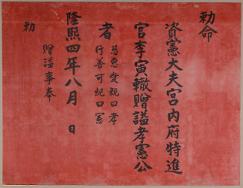 勅命
資憲大夫宮內府特進
官李寅轍贈諡孝憲公
者
慈惠愛親曰孝
行善可紀曰憲
隆熙四年八月　日
勅
贈諡事奉